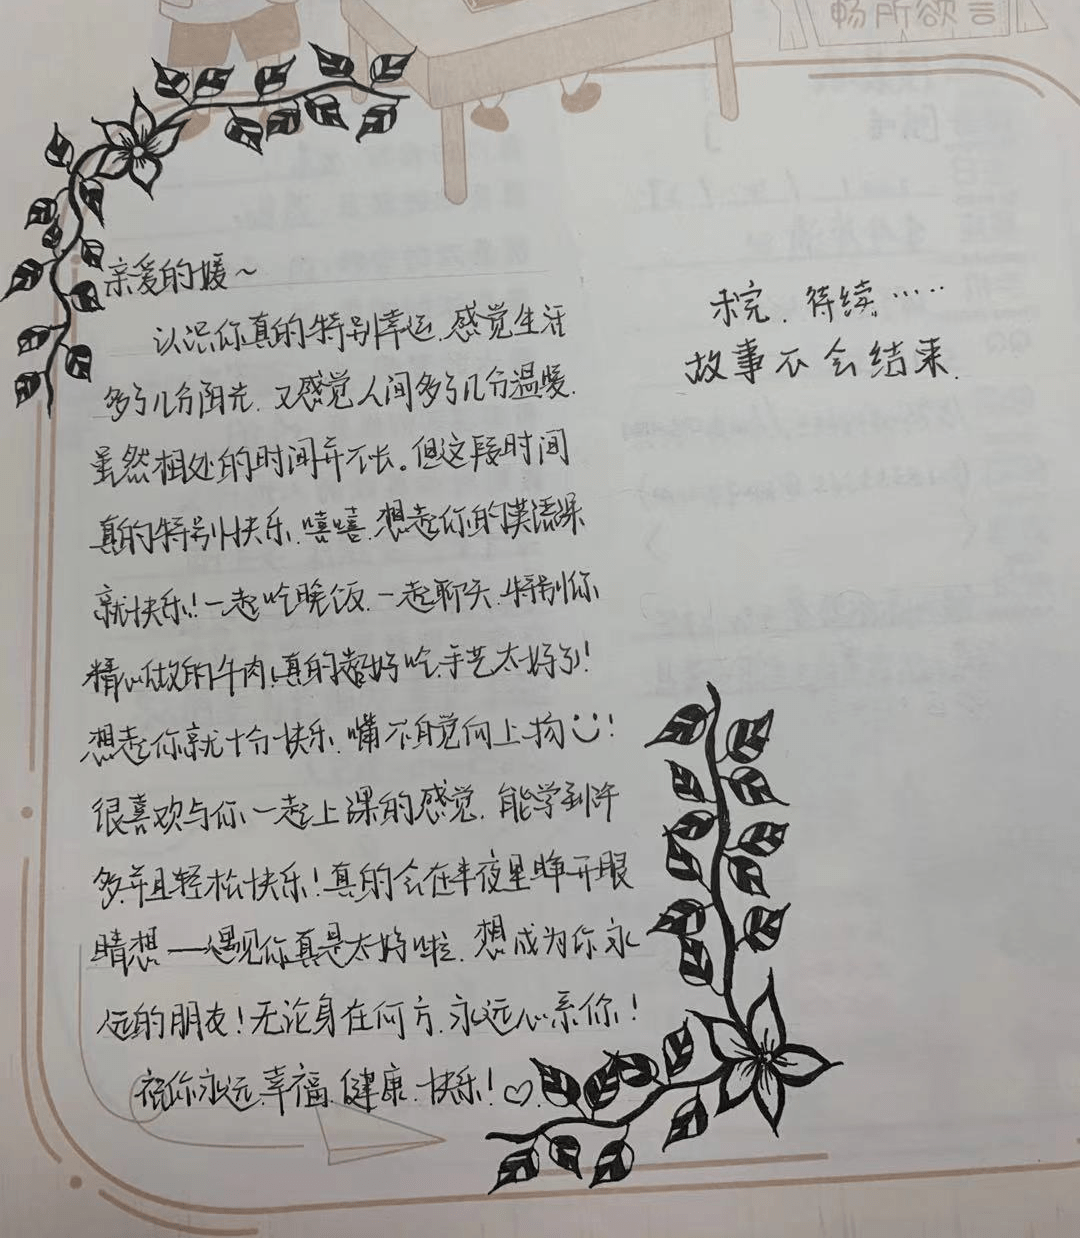 畅所欲言
亲爱的媛~
认识你真的特别幸运.感觉生活
多了几分阳光.又感觉人间多了几分温暖.
虽然相处的时间并不长。但这段时间
真的特别快乐.嘻嘻.想起你的汉语课
就快乐!一起吃晚饭.一起聊天.特别你
精心做的牛肉!真的超好吃.手艺太好了!
想起你就十分快乐.嘴不自觉向上扬!
很喜欢与你一起上课的感觉.能学到许
多.并且轻松快乐!真的会在半夜里睁开眼
睛想一遇见你真是太好啦.想成为你永
远的朋友!无论身在何方.永远心系你!
祝你永远幸福.健康.快乐!♡.
未完.待续……
故事不会结束.